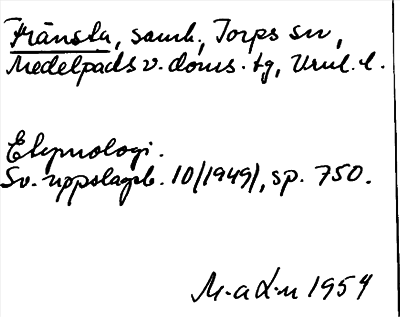 Fränsta, samh., Torps sn,
Medelpads v. doms. tg, Vnrl. l.
Etymologi.
Sv. uppslagsb. 10 (1949), sp. 750.
M-a L-n 1954